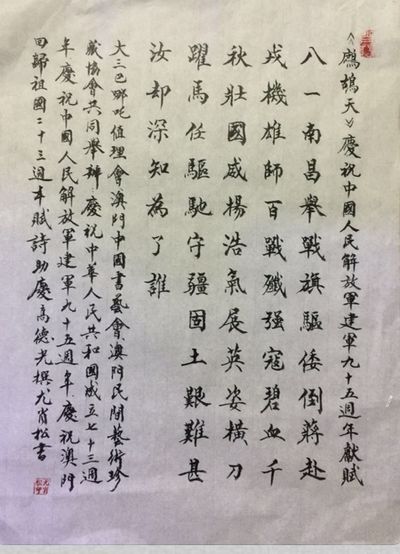 《鷓鴣天》慶祝中國人民解放軍建軍九十五週年獻賦
八一南昌舉戰旗驅倭倒蔣赴
戎機雄師百戰殲强寇碧血千
秋壯國威揚浩氣展英姿橫刀
躍馬任驅馳守疆固土艱難甚
汝却深知為了誰
大三巴哪吒值理會澳門中國書藝會澳門民間藝術珍
藏協會共同舉辦慶祝中華人民共和國成立七十三週
年慶祝中國人民解放軍建軍九十五週年慶祝澳門
回歸祖國二十三週年賦詩助慶高德光撰尤肖松書